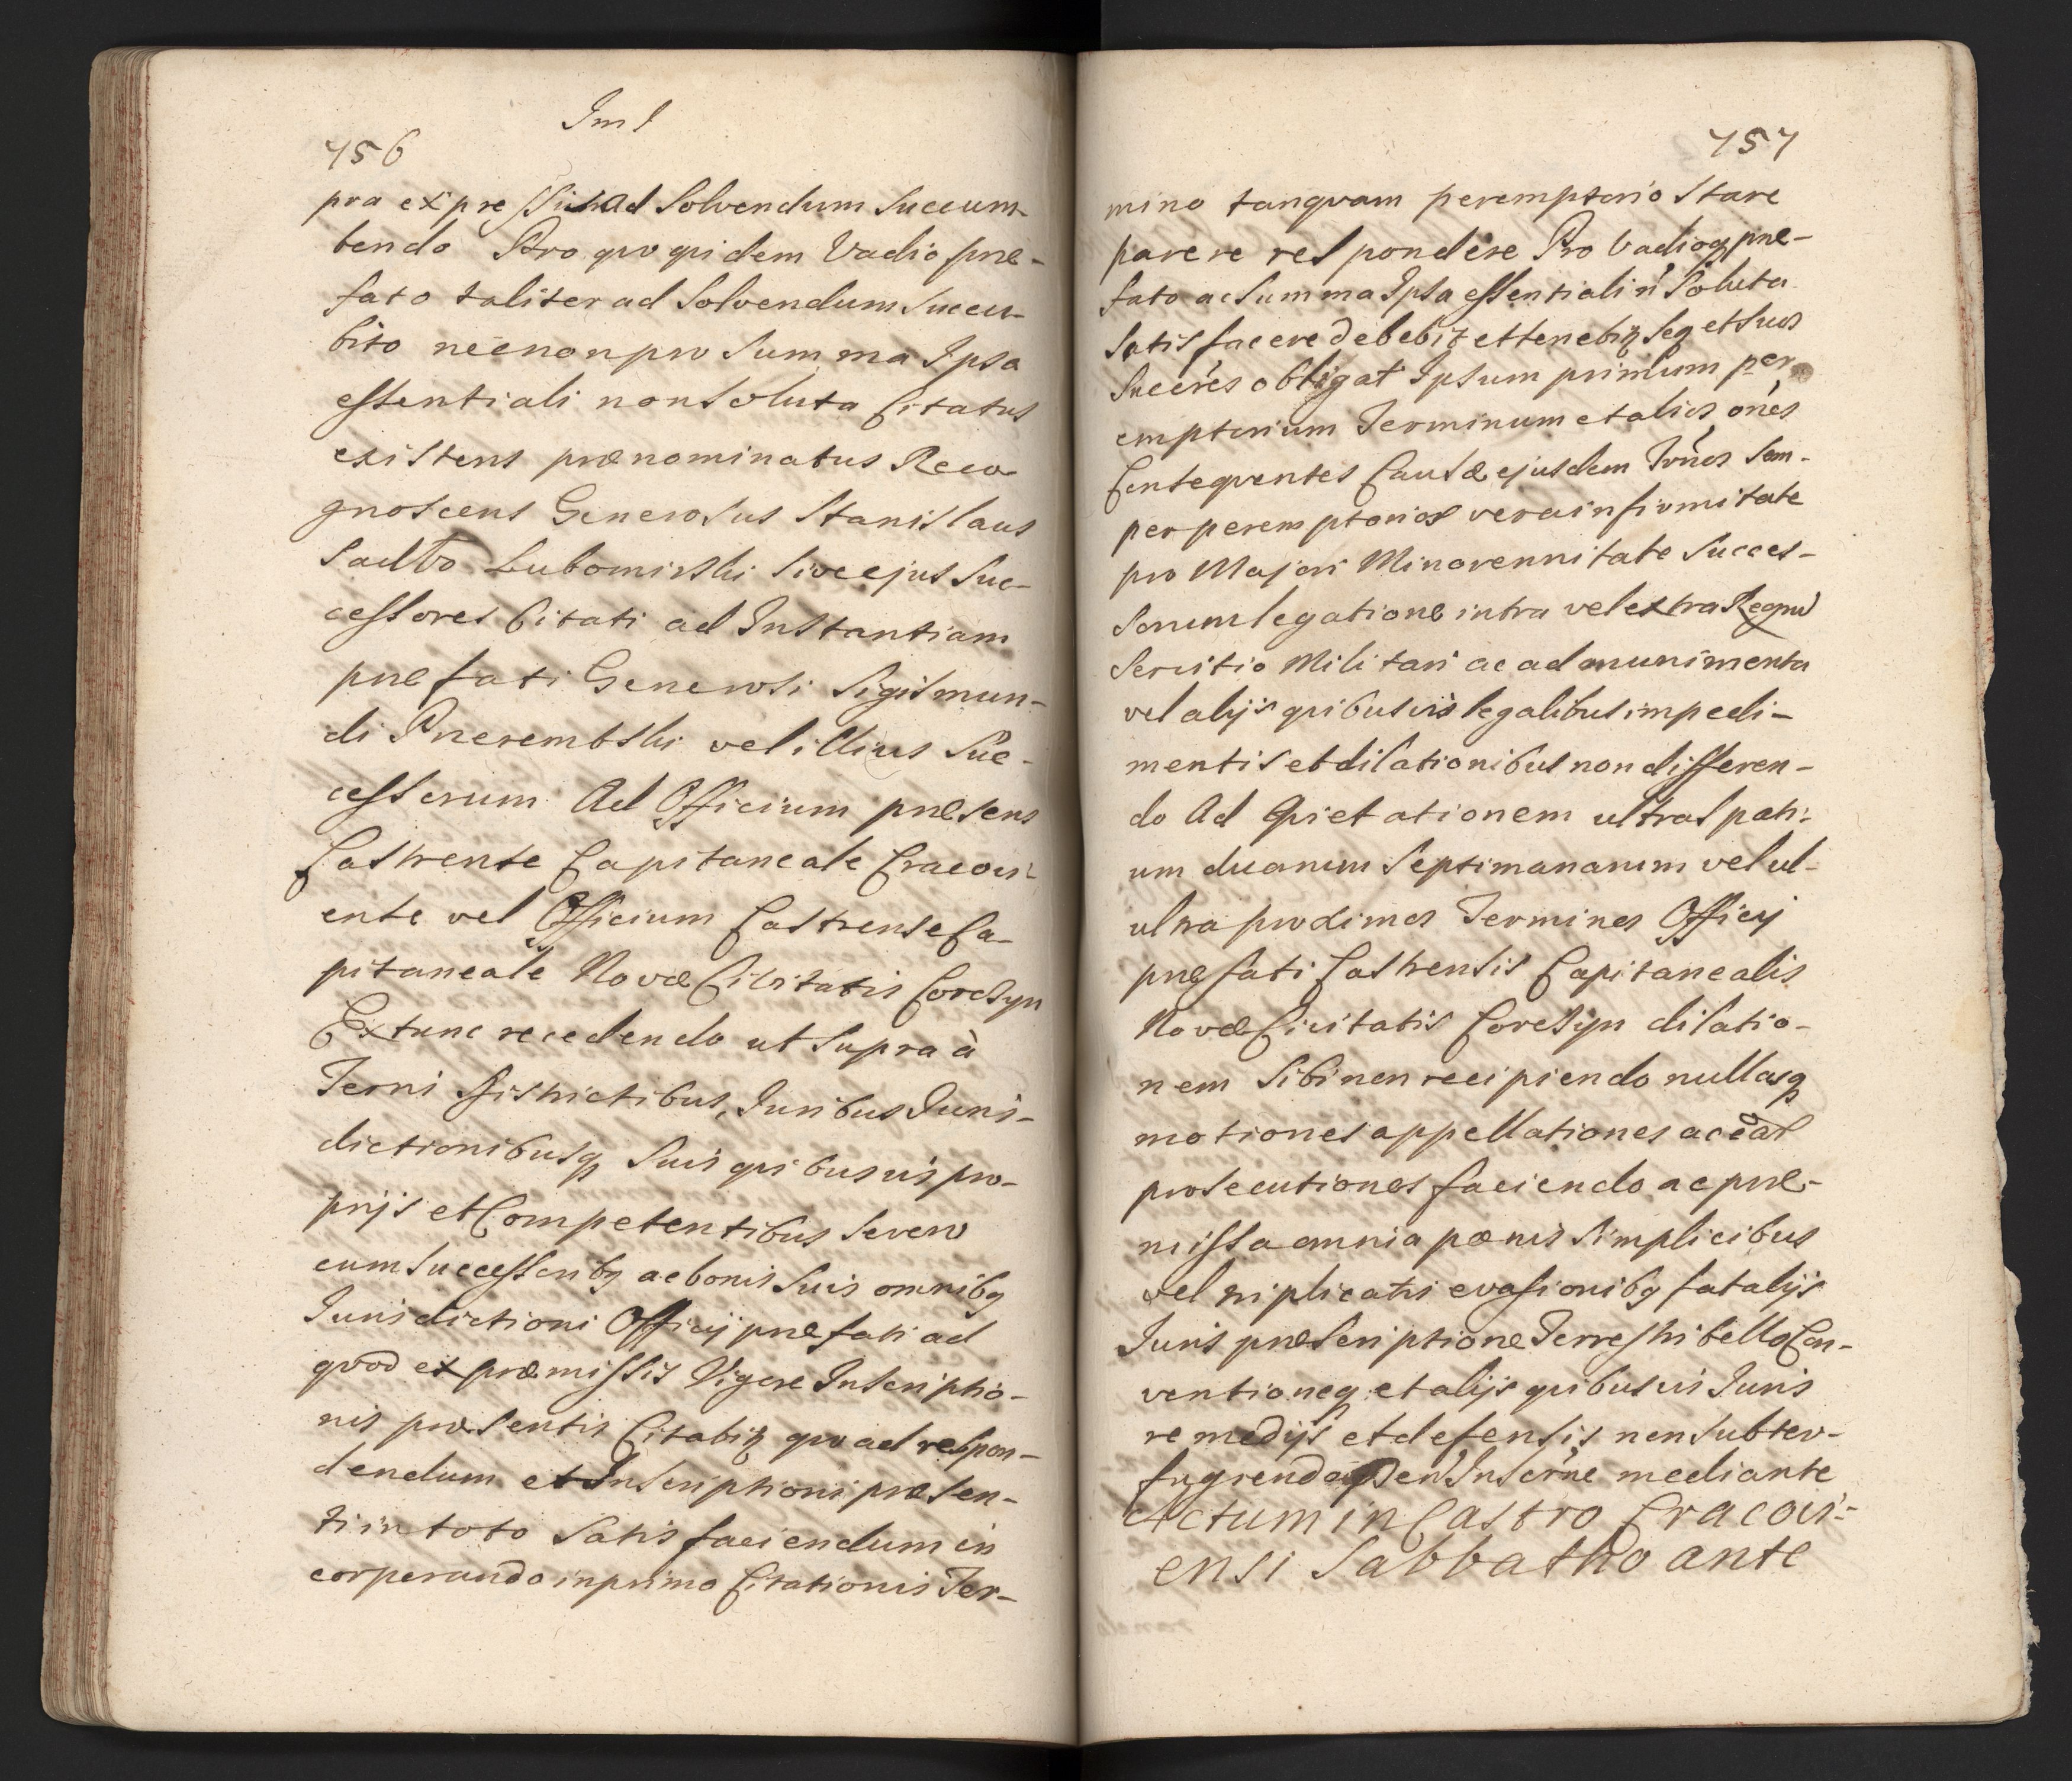 Iml
756
pra expressit ad Solvendum Succum-
bendo Pro quo quidem Vadio præ-
fato taliter ad Solvendum Succu-
bito necnon pro Summa Ipsa
essentiali non Soluta Citatus
existens prænominatus Reco-
gnoscens Generosus Stanislaus
Lubomirski Sive ejus Suc-
cessores Citati ad Instantiam
præfati Generosi Sigismun-
di Prerembski vel illius Suc-
cessorum Ad Officium præsens
Castrense Capitaneale Cracovi-
ense vel Officium Castrense Ca-
pitaneale Novæ Civitatis Corczyn
Extunc recedendo ut Supra à
Terris Districtibus, Iuribus Iuris-
dictionibusq Suis quibusvis pro-
prijs et Competentibus Severo
cum Successoribq ac bonis Suis omnibq
Iurisdictioni Officij præfati ad
quod ex præmissis Vigore Inscriptio-
nis præsentis Citabiz quo ad respon-
dendum et Inscriptioni præsen-
ti in toto Satis faciendum in
corperando in primo Citationis Ter-
757
mino tanquam peremptorio Stare
parere respondere Pro Vadioq præ-
fato ac Summa Ipsa essentiali ñ Soluta
Satisfacere debebiz et tenebiz Seq et Suos
Succēres obligat Ipsum primum per
emptorium Terminum et alios ones
Consequentes Causæ ejusdem Trños Sem-
per peremptorios vera infirmitate
pro Majori Minorennitate Succes-
Sorum legatione intra vel extra Regnū
Servitio Militari ac ad munimenta
vel alijs quibusvis legalibus impedi-
mentis et dilationibus non differen-
do Ad Quietationem ultra Spati-
um duarum Septimanarum vel ul-
ultra proximos Terminos Officij
præfati Castrensis Capitanealis
Novæ Civitatis Corczyn dilatio-
nem Sibi non recipiendo nullasq
motiones appellationes ac eār
prosecutiones faciendo ac præ-
missa omnia pœnis Simplicibus
vel triplicatis evasionibq fatalijs
Iuris præscriptione Terrestri bello Con-
ventioneq et alijs quibusvis Iuris
remedijs et defensis non Subter-
fugiendo Inscrñe mediante
Actum in Castro Cracovi-
ensi Sabbatho ante